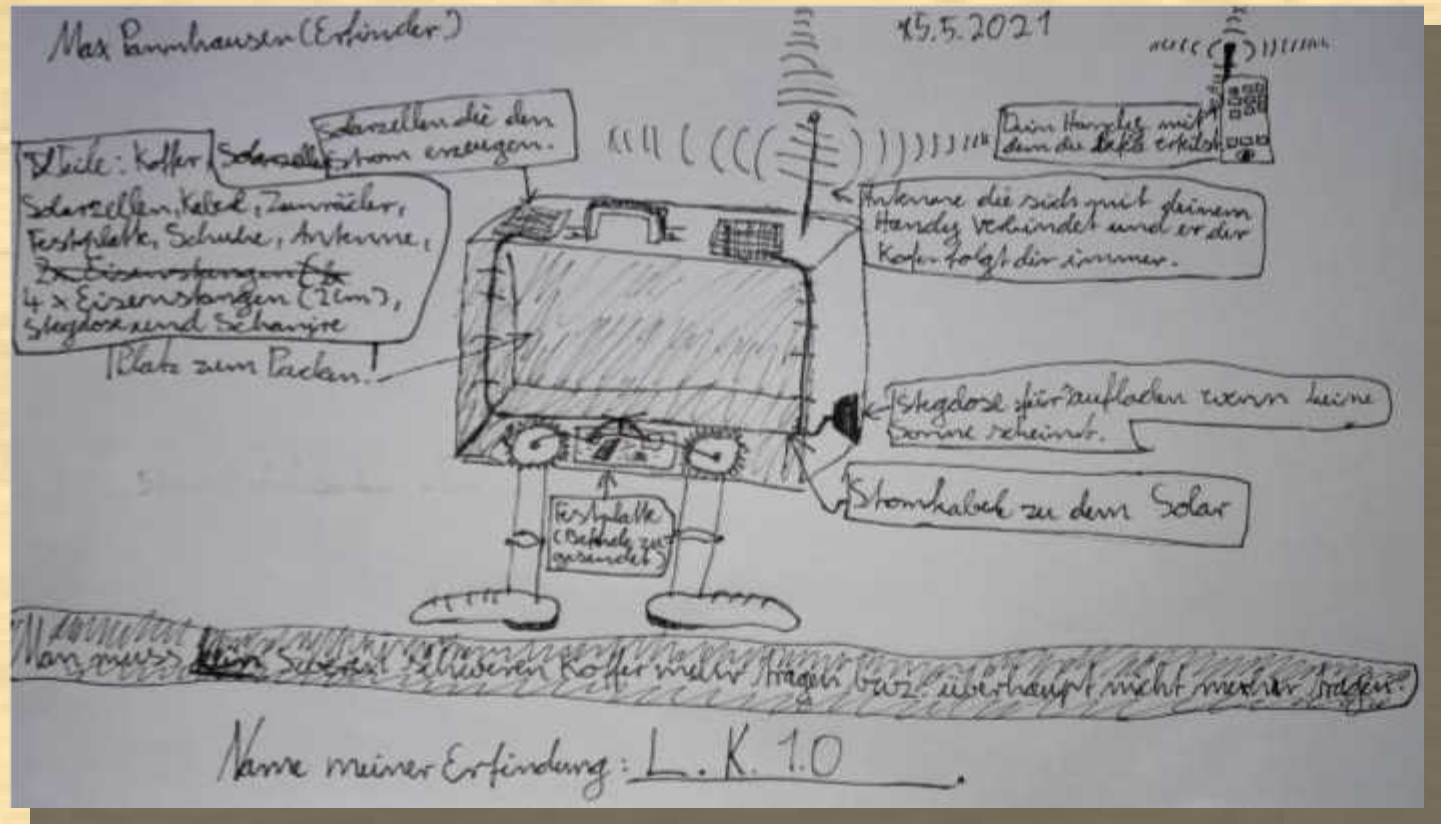 Max Pannhausen (Erfinder)
15.5.2021
Solarzellen die den
Strom erzeugen.
Teile: Koffer, Solarzelle
Solarzellen, Kabel, Zanräder,
Festplatte, Schuhe, Antenne,
2x Eisenstangen (2x
4 x Eisenstangen (2cm),
stegdose und Schanjre
Platz zum Packen.
Dein Handy mit
dem du erteilst
Antenne die sich mit deinem
Handy verbindet und er der
Kofer folgt dir immer.
Stegdose für aufladen wenn keine
Sonne scheint.
Stromkabel zu dem Solar
Festplatte
(Befehle zu
gesendet)
Man muss schweren Koffer mehr tragen bwz. überhaupt nicht mehr tragen.
Name meiner Erfindung: L. K. 1.0.